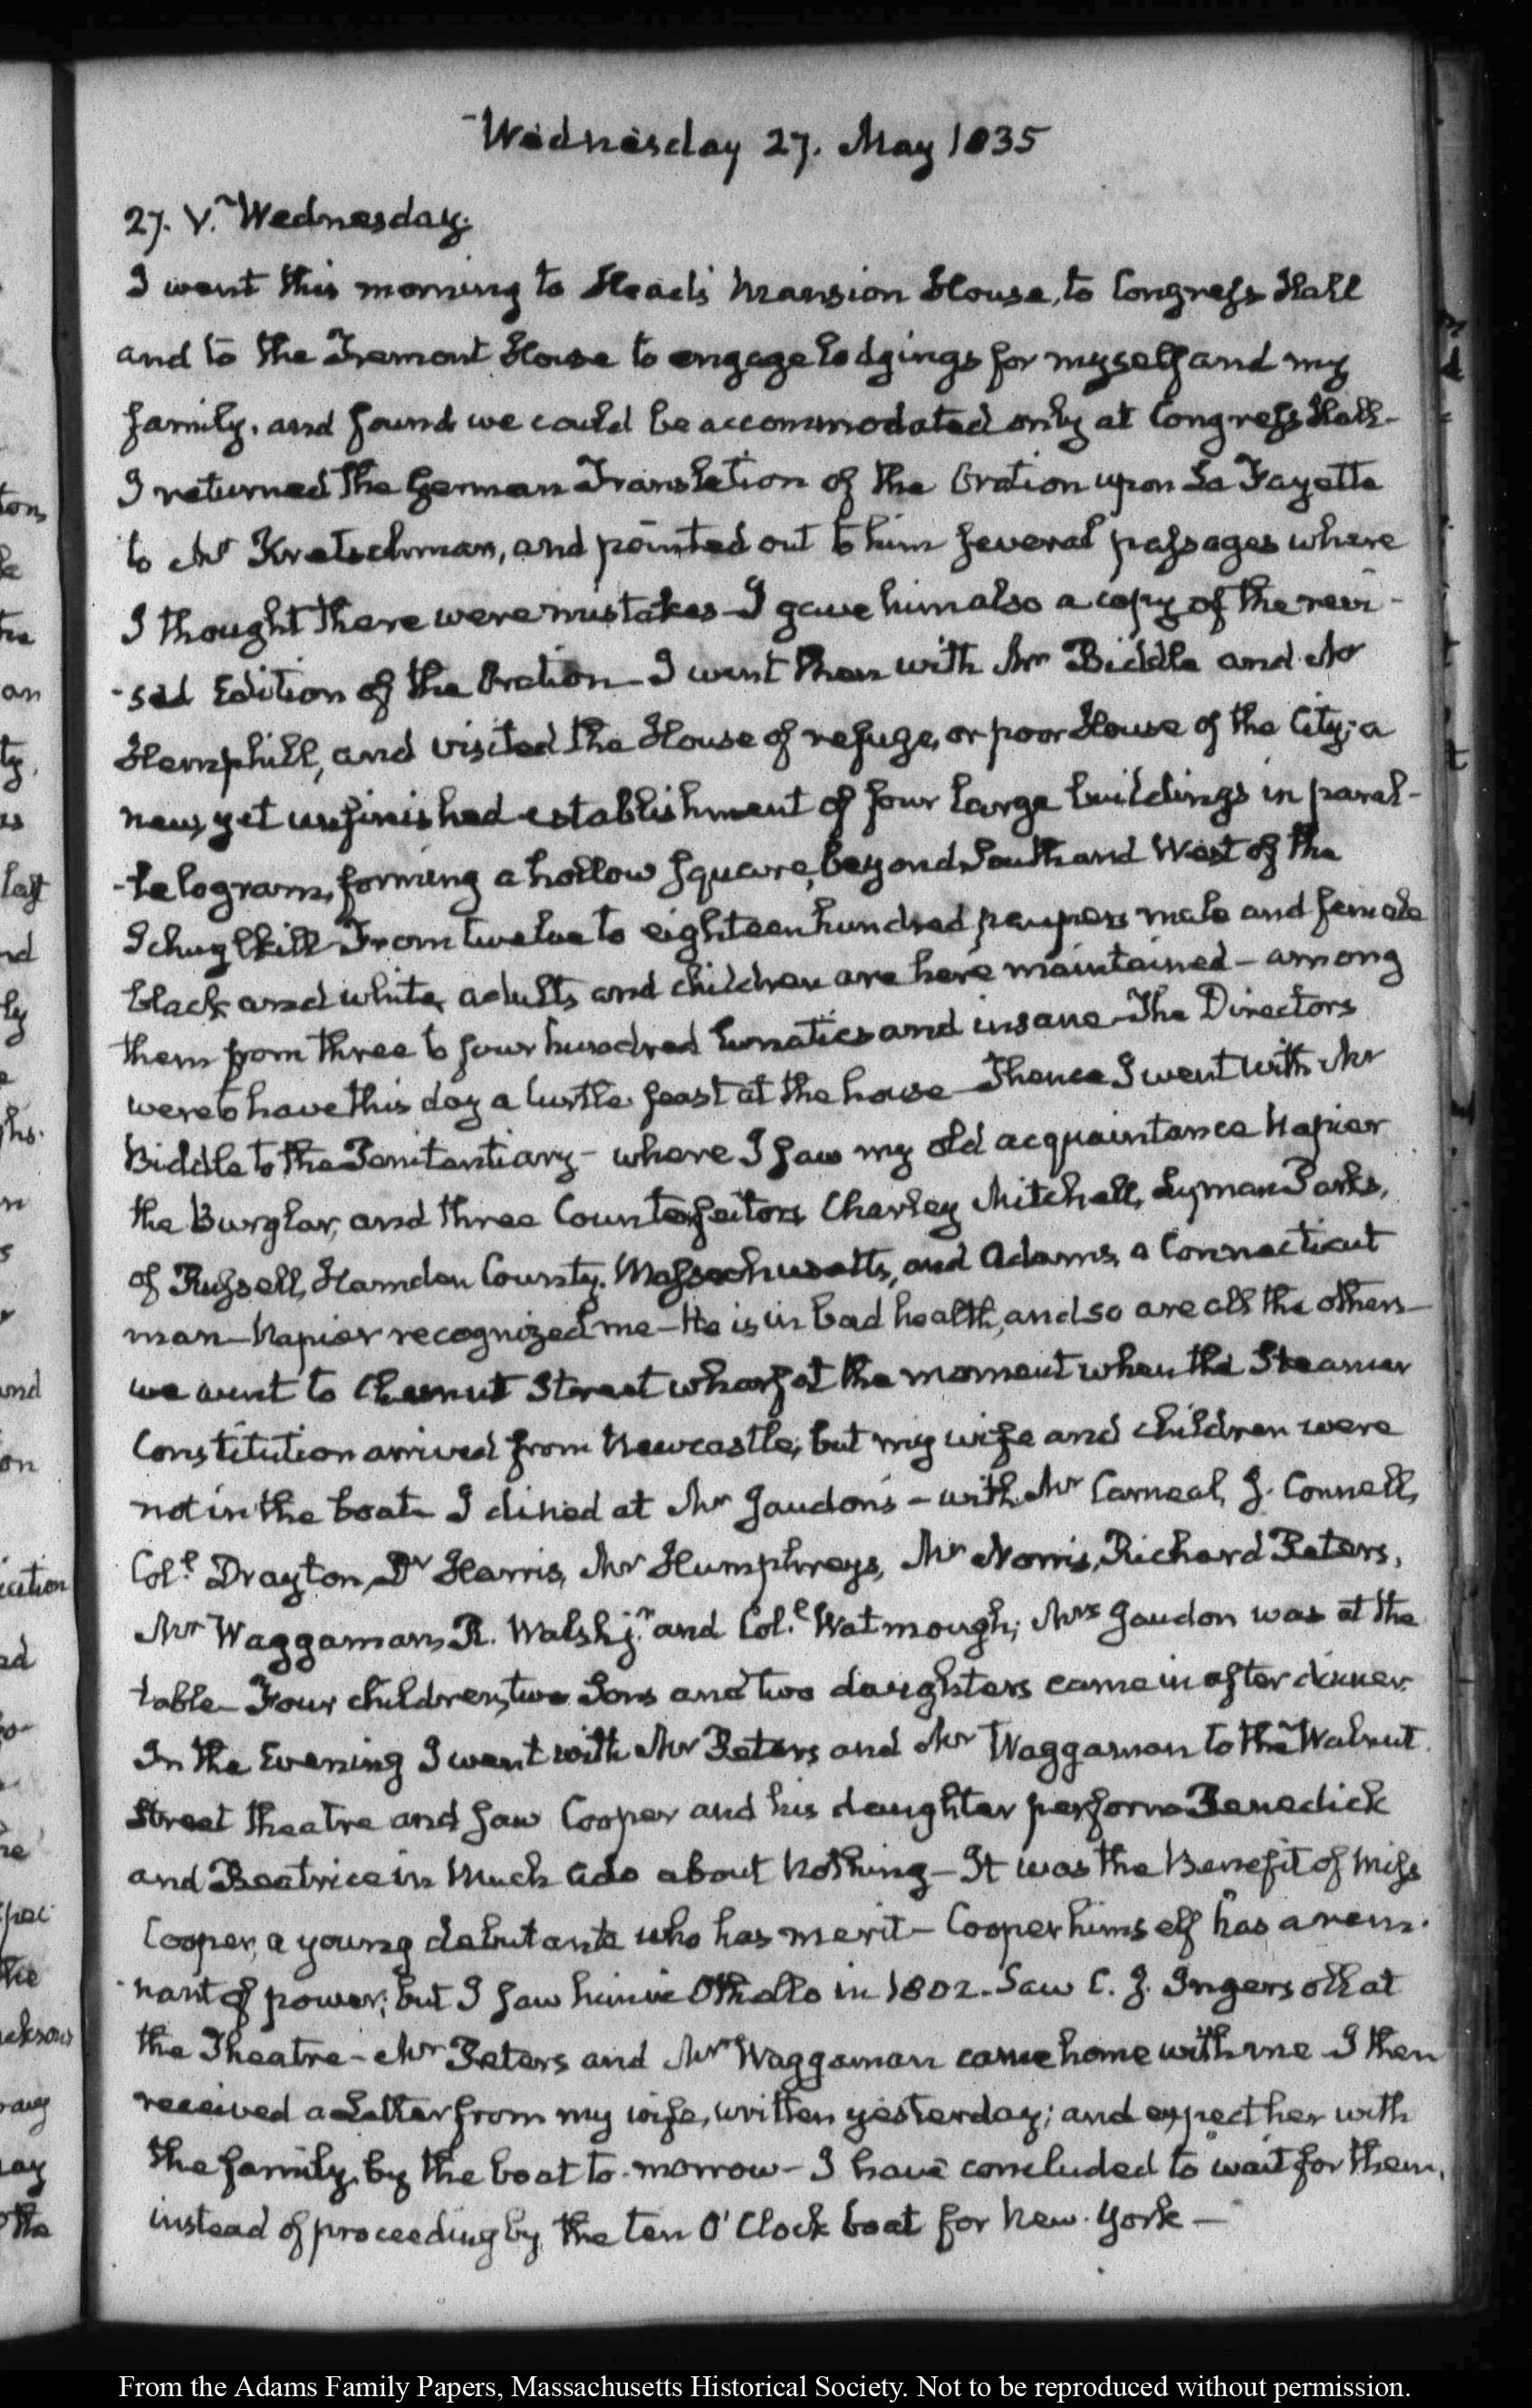 Wednesday 27. May 1835
27. V. Wednesday.
I went this morning to Head's Mansion House, to Congress Hall
and to the Tremont House to engage lodgings for myself and my
family, and found we could be accommodated only at Congress Hall-
I returned the German Translation of the Oration upon La Fayette
to Mr Kretschman, and pointed out to him several passages where
I thought there were mistakes- I gave him also a copy of the revi-
-sed Edition of the Oration- I went then with Mr Biddle and Mr
Hemphill, and visited the House of refuge, or poor House of the City; a
new, yet unfinished establishment of four large buildings in paral-
-lelogram, forming a hollow square, beyond South and West of the
Schuylkill- From twelve to eighteen hundred paupers male and female
black and white, adults and children are here maintained- among
them from three to four hundred lunatics and insane- The Directors
were to have this day a turtle feast at the house- Thence I went with Mr
Biddle to the Penitentiary- where I saw my old acquaintance Napier
the Burglar, and three Counterfeitors Charley Mitchell, Lyman Parks,
of Russell, Hamden County, Massachusetts, and Adams, a Connecticut
man- Napier recognized me- He is in bad health, and so are all the others-
we went to Chesnut Street wharf at the moment when the Steamer
Constitution arrived from Newcastle; but my wife and children were
not in the boat- I dined at Mr Jaudon's- with Mr Carneal, J. Connell,
Coll. Drayton, Dr Harris, Mr Humphreys, Mr Norris, Richard Peters,
Mr Waggaman, R. Walsh jr. and Coll. Watmough; Mrs Jaudon was at the
table- Four children, two Sons and two daughters came in after dinner.
In the Evening I went with Mr Peters and Mr Waggaman to the Walnut
Street theatre and saw Cooper and his daughter perform Benedick
and Beatrice in Much ado about Nothing- It was the Benefit of Miss
Cooper, a young debutante who has merit- Cooper himself has a rem-
-nant of power; but I saw him in Othello in 1802. Saw C. J. Ingersoll at
the Theatre- Mr Peters and Mr Waggaman came home with me- I then
received a Letter from my wife, written yesterday; and expect her with
the family, by the boat to-morrow- I have concluded to wait for them,
instead of proceeding by the ten O'Clock boat for New-York-
From the Adams Family Papers, Massachusetts Historical Society. Not to be reproduced without permission.